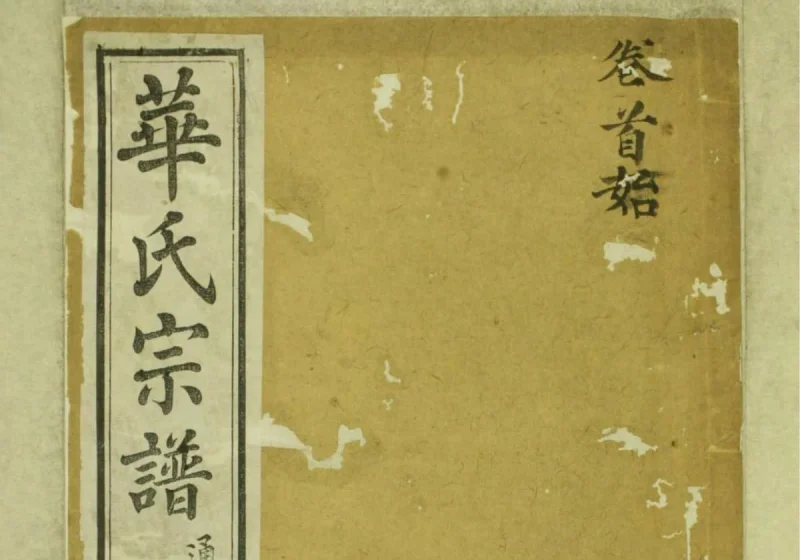 卷首始
華氏宗譜
通